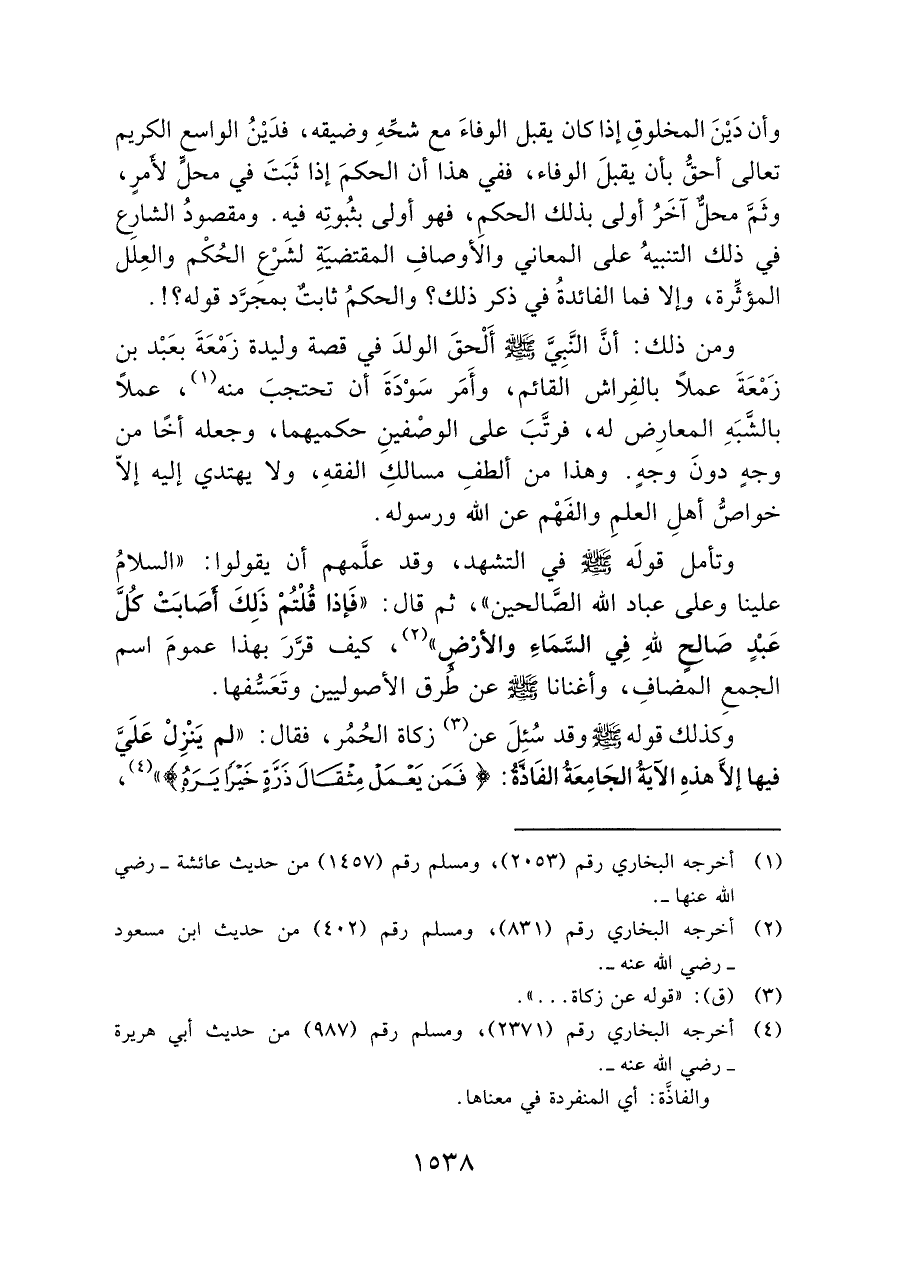 وأن دَيْنَ المخلوقِ إذا كان يقبل الوفاءَ مع شحِّهِ وضيقه، فدَيْنُ الواسع الكريم
تعالى أحقُّ بأن يقبلَ الوفاء، ففي هذا أن الحكمَ إذا ثَبَتَ في محلٍّ لأَمرٍ،
وثَمَّ محلٌّ آخَرُ أولى بذلك الحكمِ، فهو أولى بثُبوتِه فيه. ومقصودُ الشارع
في ذلك التنبيهُ على المعاني والأوصافِ المقتضيَةِ لشَرْعِ الحُكْم والعِلَل
المؤثِّرة، وإلا فما الفائدةُ في ذكر ذلك؟ والحكمُ ثابتٌ بمجرَّد قوله؟!.
ومن ذلك: أنَّ النَّبِيَّ ﷺ أَلْحقَ الولدَ في قصة وليدة زَمْعَةَ بعَبْد بن
زَمْعَةَ عملاً بالفِراش القائم، وأَمَر سَوْدَةَ أن تحتجبَ منه(١)، عملاً
بالشَّبَهِ المعارِض له، فرتَّبَ على الوصْفينِ حكميهما، وجعله أخًا من
وجهٍ دونَ وجهٍ. وهذا من ألطفِ مسالكِ الفقهِ، ولا يهتدي إليه إلاّ
خواصُّ أهلِ العلمِ والفَهْم عن الله ورسوله.
وتأمل قولَه ﷺ في التشهد، وقد علَّمهم أن يقولوا: «السلامُ
علينا وعلى عباد الله الصَّالحين»، ثم قال: «فَإذا قُلْتُمْ ذَلِكَ أَصَابَتْ كُلَّ
عَبْدٍ صَالِحٍ للهِ فِي السَّمَاءِ والأرْضِ»(٢)، كيف قرَّرَ بهذا عمومَ اسم
الجمعِ المضافِ، وأغنانا ﷺ عن طُرق الأصوليين وتَعَسُّفها.
وكذلك قوله ﷺ وقد سُئِلَ عن(٣) زكاة الحُمُر، فقال: «لم يَنْزِلْ عَلَيَّ
فيها إلاَّ هذهِ الآيَةُ الجَامِعَةُ الفَاذَّةُ: ﴿ فَمَن يَعْمَلْ مِثْقَالَ ذَرَّةٍ خَيْرًا يَرَهُ﴾»(٤)،
(١) أخرجه البخاري رقم (٢٠٥٣)، ومسلم رقم (١٤٥٧) من حديث عائشة ـ رضي
الله عنها ـ.
(٢) أخرجه البخاري رقم (٨٣١)، ومسلم رقم (٤٠٢) من حديث ابن مسعود
ـ رضي الله عنه ـ.
(٣) (ق): «قوله عن زكاة...».
(٤) أخرجه البخاري رقم (٢٣٧١)، ومسلم رقم (٩٨٧) من حديث أبي هريرة
ـ رضي الله عنه ـ.
والفاذَّة: أي المنفردة في معناها.
١٥٣٨